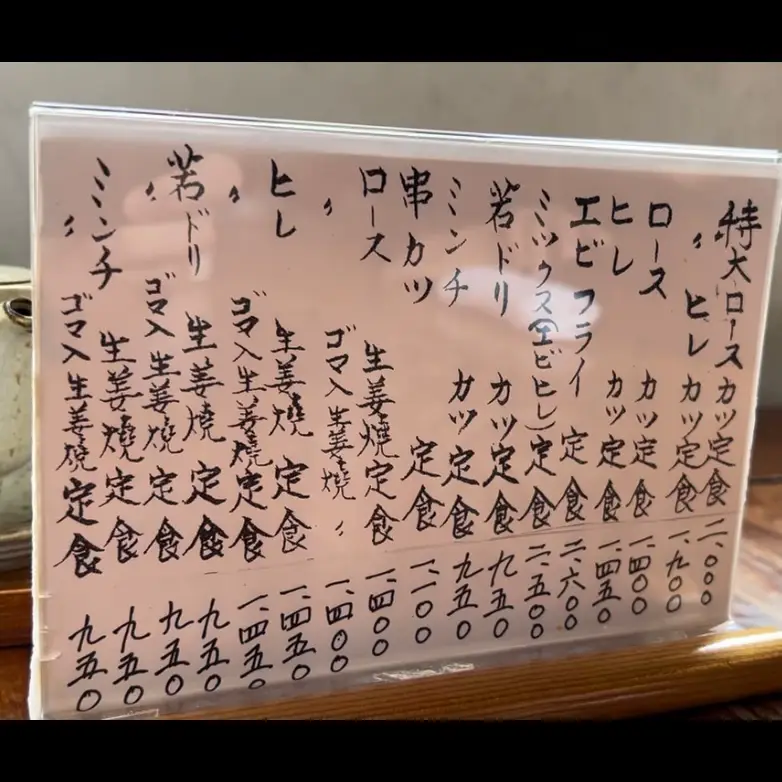 特大ロースカツ定食 二、〇〇〇
〃 ヒレカツ定食 一、九〇〇
ロースカツ定食 一、四〇〇
ヒレカツ定食 一、四五〇
エビフライ定食 二、六〇〇
ミックス(エビヒレ)定食 二、五〇〇
若ドリカツ定食 九五〇
ミンチカツ定食 九五〇
串カツ定食 一、一〇〇
ロース生姜燒定食 一、四〇〇
〃 ゴマ入生姜燒〃 一、四〇〇
ヒレ生姜燒定食 一、四五〇
〃 ゴマ入生姜燒定食 一、四五〇
若ドリ生姜燒定食 九五〇
〃 ゴマ入生姜燒定食 九五〇
ミンチ生姜燒定食 九五〇
〃 ゴマ入生姜燒定食 九五〇